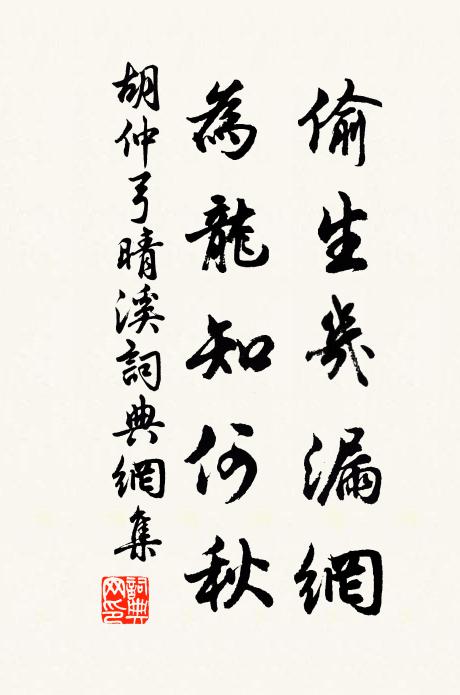 偷生幾漏網
為龍知何秋
胡仲弓晴溪詞典網集
詞典網印